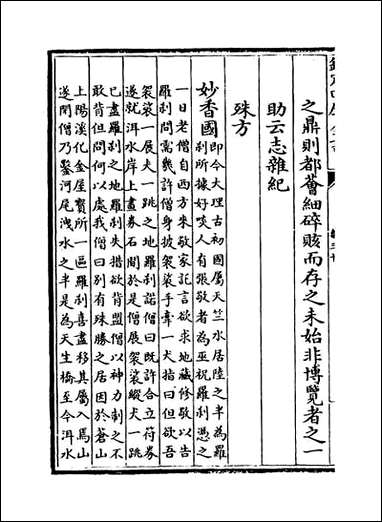 之鼎則都薈細碎賅而存之未始非博覽者之一
助云志雜紀
殊方
妙香國
即今大理古初國屬天竺水居陸之半為羅
刹所據好啖人有張敬者為巫祝羅刹憑之
一日老僧自西方來敬家託言欲求地藏修敬以告
羅刹問需幾許僧身披袈裟手牽一犬指曰但欲吾
袈裟一展犬一跳之地羅刹諾僧曰既許合立符券
遂就洱水岸上畫券石間於是僧展袈裟縱犬一跳
已盡羅刹之地羅刹失措欲背盟僧以神力制之不
敢背但問何以處我僧曰別有殊勝之居因於蒼山
上陽溪化金屋寶所一區羅刹喜盡移其屬入焉山
遂閉僧乃鑿河尾洩水之半是為天生橋至今洱水